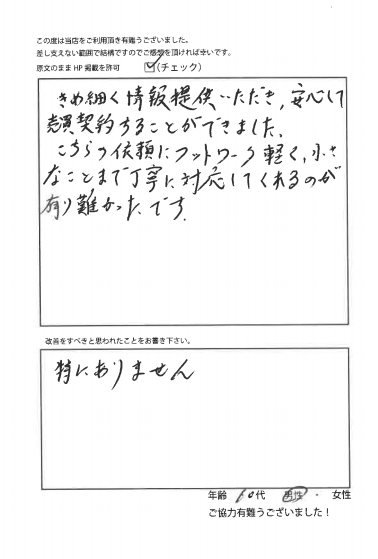 この度は当店をご利用頂き有難うございました。
差し支えない範囲で結構ですのでご感想を頂ければ幸いです。
原文のまま HP 掲載を許可 ☑(チェック)
きめ細く情報提供いただき、安心して
売買契約することができました。
こちらの依頼にフットワーク軽く、小さ
なことまで丁寧に対応してくれるのが
有り難かったです。
改善をすべきと思われたことをお書き下さい。
特にありません
年齢 60代 男性 ・ 女性
ご協力有難うございました!